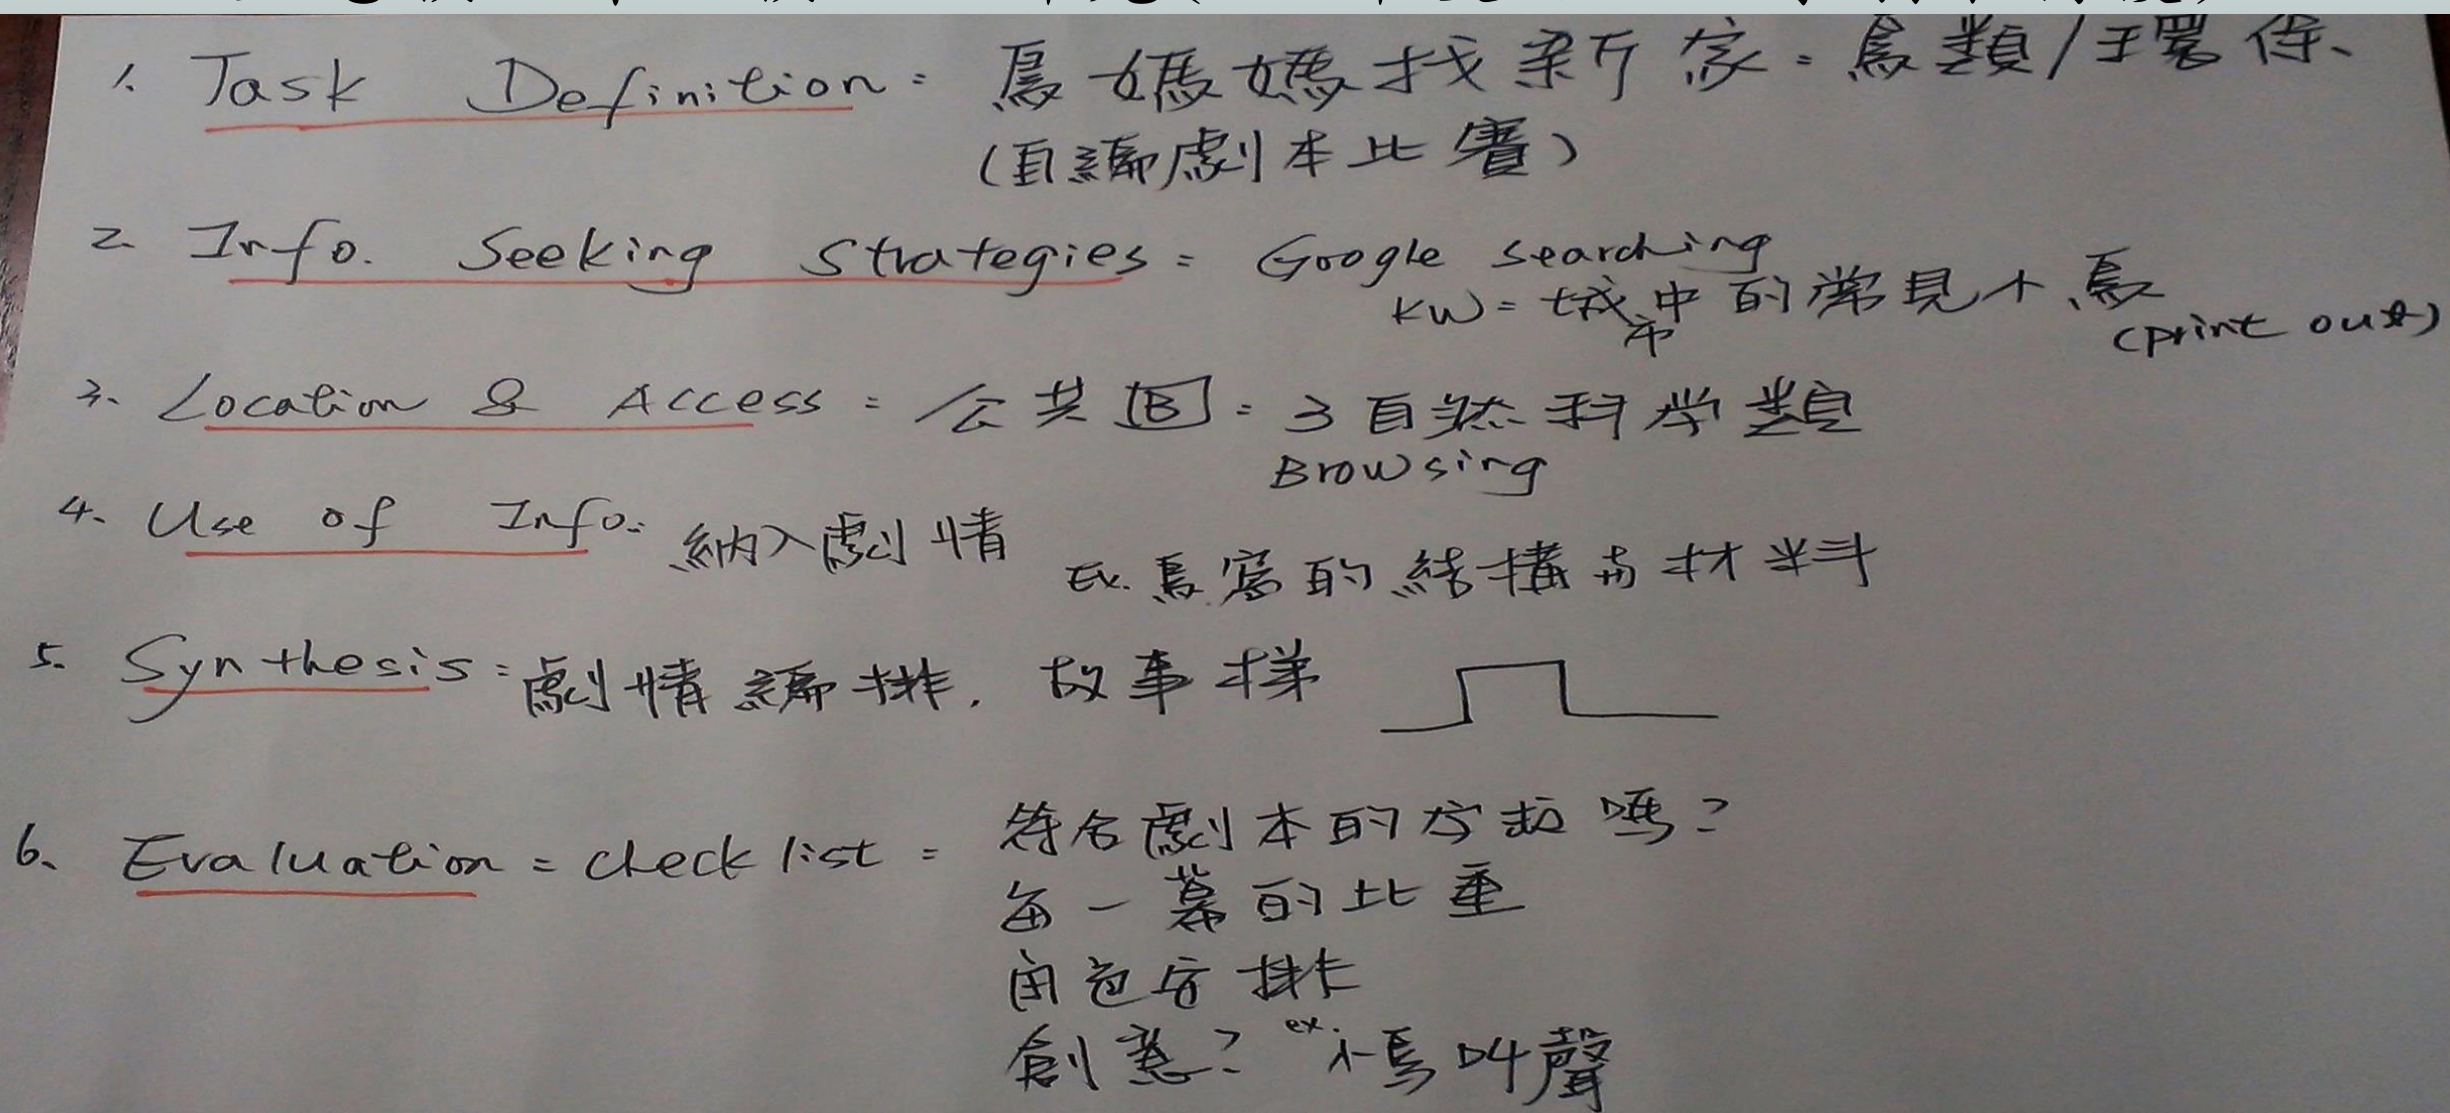 1. Task Definition: 鳥媽媽找新家。鳥類/環保、
(自編劇本比賽)
2. Info. Seeking Strategies: Google searching
KW=城市中的常見小鳥
(print out)
3. Location & Access: 公共圖: 3自然科学類
Browsing
4. Use of Info: 納入劇情
Ex. 鳥窩的結構与材料
5. Synthesis: 劇情編排. 故事梯
6. Evaluation = check list = 符合劇本的方式嗎?
每一幕的比重
角色安排
創意? ex. 小鳥叫聲